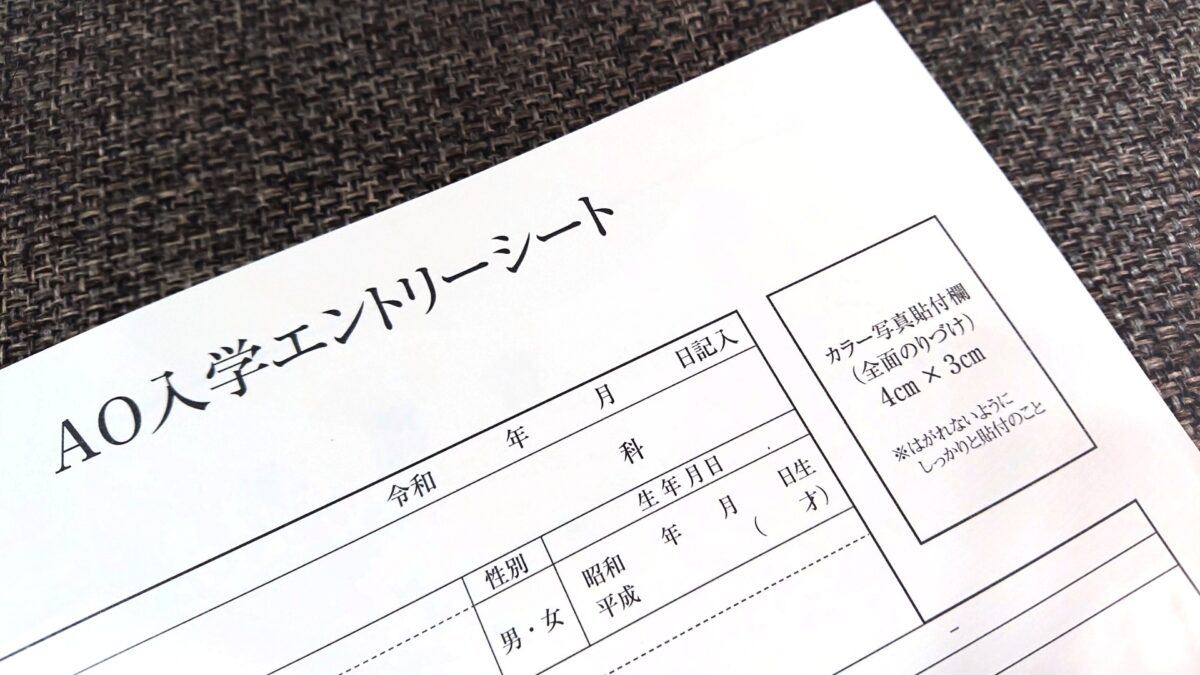 AO入学エントリーシート
令和 年 月 日記入
科
性別
男・女
生年月日
昭和
平成
年 月 日生
( 才)
カラー写真貼付欄
(全面のりづけ)
4cm × 3cm
※はがれないように
しっかりと貼付のこと